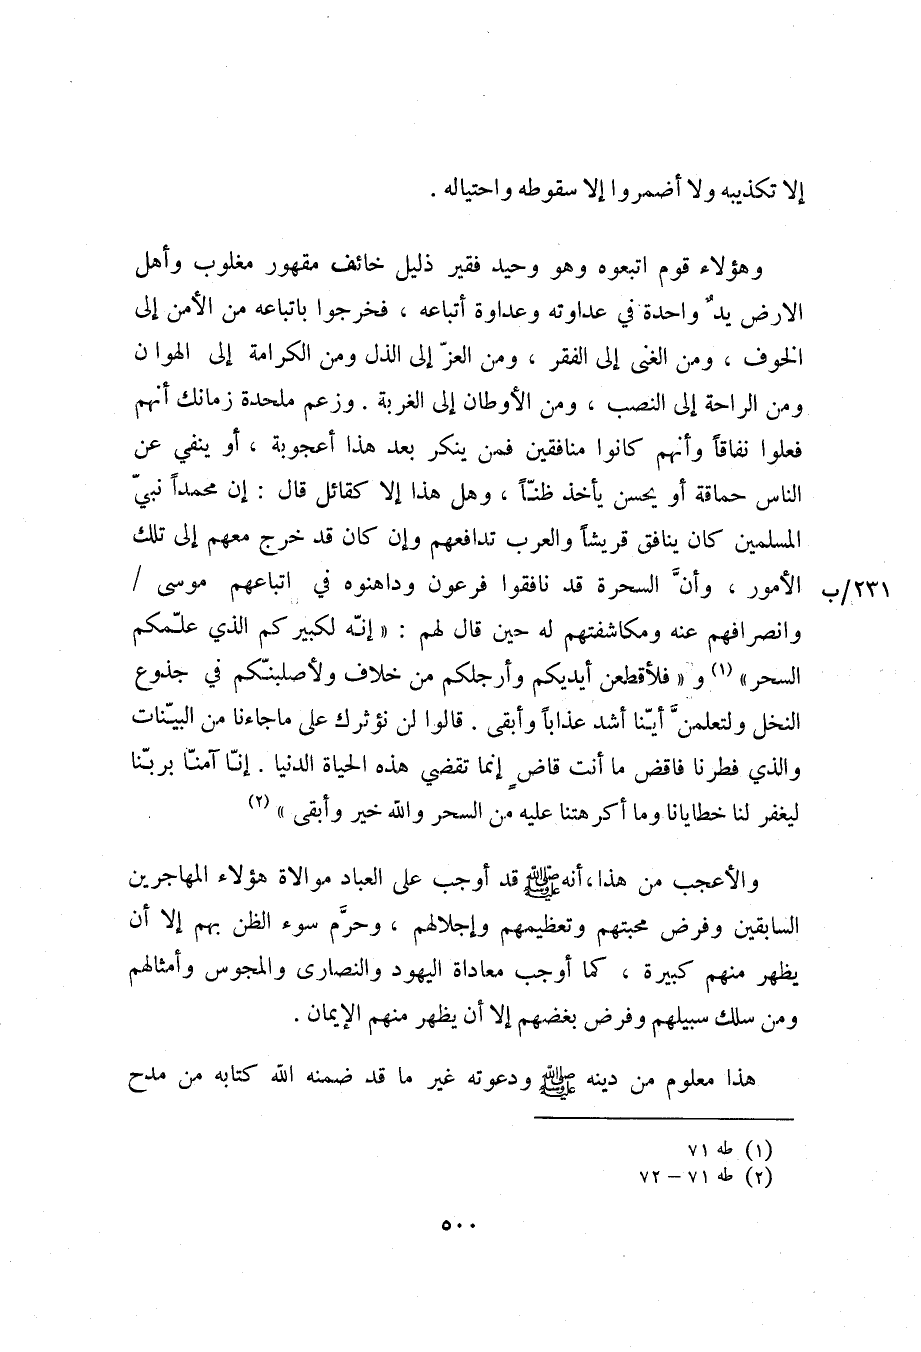 إلا تكذيبه ولا أضمروا إلا سقوطه واحتياله .
وهؤلاء قوم اتبعوه وهو وحيد فقير ذليل خائف مقهور مغلوب وأهل
الارض يدٌ واحدة في عداوته وعداوة أتباعه ، فخرجوا باتباعه من الأمن إلى
الخوف ، ومن الغنى إلى الفقر ، ومن العزّ إلى الذل ومن الكرامة إلى الهوان
ومن الراحة إلى النصب ، ومن الأوطان إلى الغربة . وزعم ملحدة زمانك أنهم
فعلوا نفاقاً وأنهم كانوا منافقين فمن ينكر بعد هذا أعجوبة ، أو ينفي عن
الناس حماقة أو يحسن يأخذ ظنّاً ، وهل هذا إلا كقائل قال : إن محمداً نبيّ
المسلمين كان ينافق قريشاً والعرب تدافعهم وإن كان قد خرج معهم إلى تلك
الأمور ، وأنَّ السحرة قد نافقوا فرعون وداهنوه في اتباعهم موسى / ٢٣١/ب
وانصرافهم عنه ومكاشفتهم له حين قال لهم : « إنّه لكبيركم الذي علّمكم
السحر» (١) و « فلأقطعن أيديكم وأرجلكم من خلاف ولأصلبنّكم في جذوع
النخل ولتعلمنَّ أيّنا أشد عذاباً وأبقى . قالوا لن نؤثرك على ماجاءنا من البيّنات
والذي فطرنا فاقض ما أنت قاضٍ إنما تقضي هذه الحياة الدنيا . إنّا آمنّا بربّنا
ليغفر لنا خطايانا وما أكرهتنا عليه من السحر والله خير وأبقى » (٢)
والأعجب من هذا، أنه ﷺ قد أوجب على العباد موالاة هؤلاء المهاجرين
السابقين وفرض محبتهم وتعظيمهم وإجلالهم ، وحرَّم سوء الظن بهم إلا أن
يظهر منهم كبيرة ، كما أوجب معاداة اليهود والنصارى والمجوس وأمثالهم
ومن سلك سبيلهم وفرض بغضهم إلا أن يظهر منهم الإيمان .
هذا معلوم من دينه ﷺ ودعوته غير ما قد ضمنه الله كتابه من مدح
(١) طه ٧١
(٢) طه ٧١ – ٧٢
٥٠٠